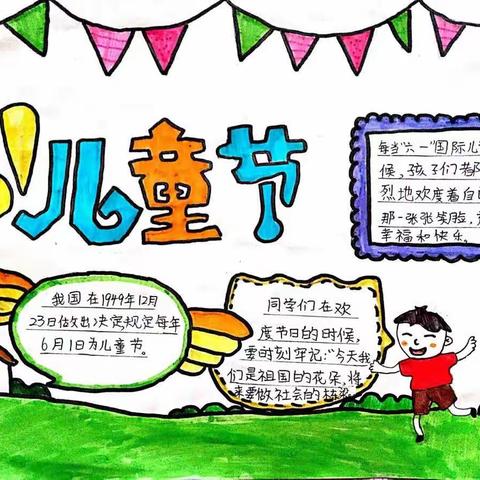 儿童节
每当"六一"国际儿
候,孩子们都
烈地欢度着自
那一张张笑脸,
幸福和快乐。
我国在1949年12月
23日做出决定规定每年
6月1日为儿童节。
同学们在欢
度节日的时候,
要时刻牢记:"今天我
们是祖国的花朵,将
来要做社会的栋梁